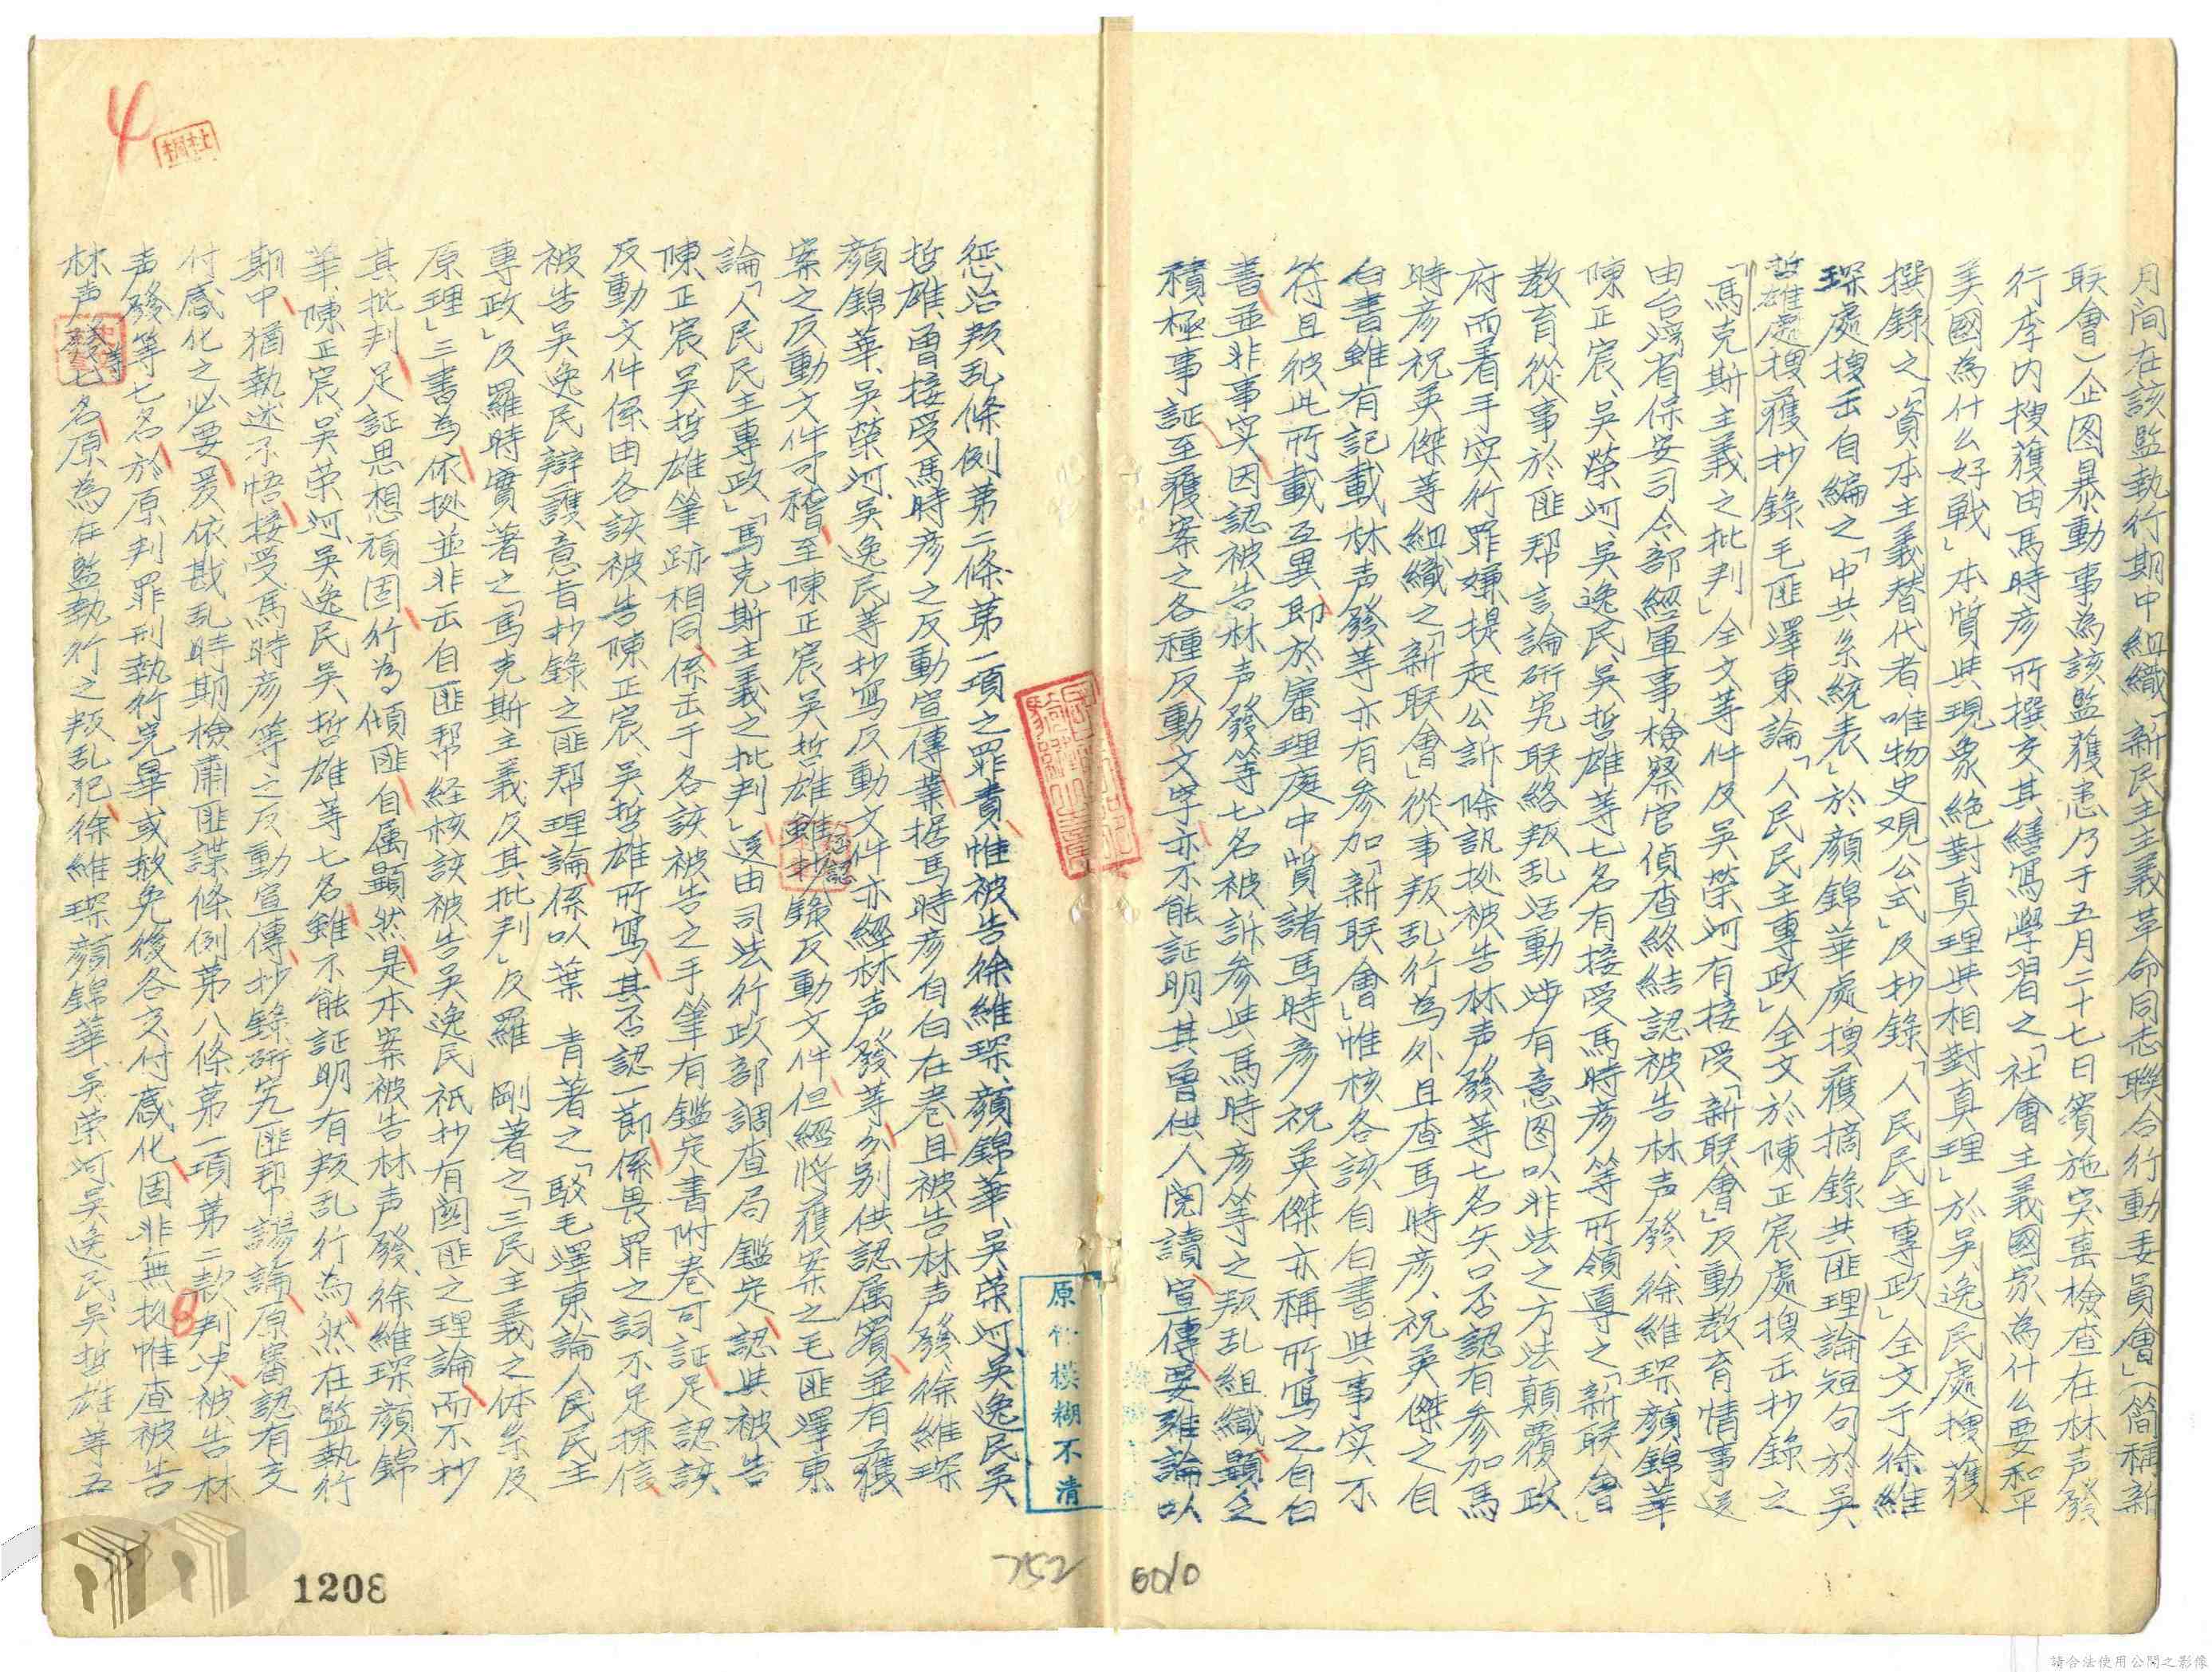 月间在該監執行期中組織「新民主主義革命同志聯合行動委員會」(簡稱新
联會)企图暴動事為該監獲悉乃于五月二十七日實施突襲檢查在林声發
行李内搜獲由馬時彦所撰交其繕寫學習之「社會主義國家為什么要和平
美國為什么好戰」本質與現象絶對真理與相對真理」於吳逸民處搜獲
撰錄之「資本主義替代者唯物史观公式」及抄錄「人民民主專政」全文于徐維
琛處搜出自編之「中共系統表」於顏錦華處搜獲摘錄共匪理論短句於吳
哲雄處搜獲抄錄毛匪澤東論「人民民主專政」全文於陳正宸處搜出抄錄之
「馬克斯主義之批判」全文等件及吳榮河有接受「新联會」反動教育情事送
由台灣省保安司令部經軍事檢察官偵查終結認被告林声發、徐維琛、顏錦華
陳正宸、吳榮河、吳逸民、吳哲雄等七名有接受馬時彦等所領導之「新联會」
教育從事於匪帮言論研究联絡叛乱活動涉有意图以非法之方法顛覆政
府而着手实行罪嫌提起公訴除訊據被告林声發等七名矢口否認有参加馬
時彦祝英傑等組織之「新联會」從事叛乱行為外且查馬時彦、祝英傑之自
白書雖有記載林声發等亦有参加「新联會」惟核各該自白書與事实不
符且彼此所載互異即於審理庭中質諸馬時彦祝英傑亦稱所寫之自白
書並非事实因認被告林声發等七名被訴参與馬時彦等之叛乱組織顯乏
積極事証至獲案之各種反動文字亦不能証明其曾供人閱讀宣傳要難論以
惩治叛乱條例第二條第一項之罪責惟被告徐維琛、顏錦華、吳荣河吳逸民吳
哲雄曾接受馬時彦之反動宣傳業据馬時彦自白在卷且被告林声發徐維琛
顏錦華、吳榮河、吳逸民等抄寫反動文件亦經林声發等分别供認属實並有獲
案之反動文件可稽至陳正宸吳哲雄雖否認抄錄反動文件但經將獲案之毛匪澤東
論「人民民主專政」「馬克斯主義之批判」送由司法行政部調查局鑑定認與被告
陳正宸吳哲雄筆跡相同係出于各該被告之手筆有鑑定書附卷可証足認該
反動文件係由各該被告陳正宸、吳哲雄所寫其否認一節係畏罪之詞不足採信
被告吳逸民辯護意旨抄錄之匪帮理論係以葉 青著之「駁毛澤東論人民民主
專政」及羅時實著之「馬克斯主義及其批判」及羅 剛著之「三民主義之体系及
原理」三書為依據並非出自匪帮経核該被告吳逸民祇抄有関匪之理論而不抄
其批判足証思想頑固行為傾匪自属顯然是本案被告林声發、徐維琛、顏錦
華、陳正宸、吳荣河、吳逸民吳哲雄等七名雖不能証明有叛乱行為然在監執行
期中猶執迷不悟接受馬時彦等之反動宣傳抄錄研究匪帮謬論原審認有交
付感化之必要爰依戡乱時期檢肅匪諜條例第八條第一項第二款判决被告林
声發等七名於原判罪刑執行完畢或赦免後各交付感化固非無據惟查被告
林声發等七名原為在監執行之叛乱犯徐維琛顏錦華、吳荣河吳逸民吳哲雄等五
4
杜桐
原件模糊不清
1208
752
6010
請合法使用公開之影像